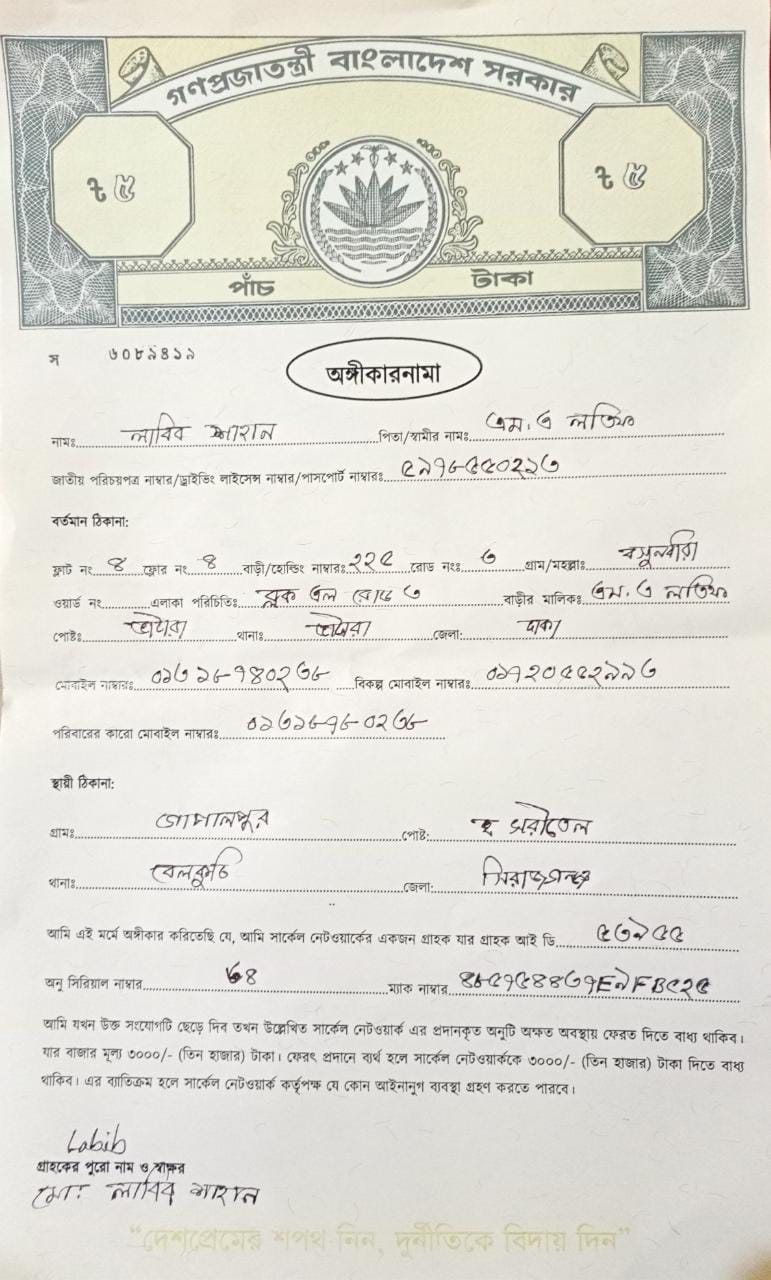 গণপ্রজাতন্ত্রী বাংলাদেশ সরকার
৳ ৫ ৳ ৫
পাঁচ টাকা
স ৬০৮৯৪১৯
অঙ্গীকারনামা
নামঃ লাবিব শাহান পিতা/স্বামীর নামঃ এম. এ লতিফ
জাতীয় পরিচয়পত্র নাম্বার/ড্রাইভিং লাইসেন্স নাম্বার/পাসপোর্ট নাম্বারঃ ৫৯৭৮৫৫০২১৩
বর্তমান ঠিকানা:
ফ্লাট নং ৪ ফ্লোর নং ৪ বাড়ী/হোল্ডিং নাম্বারঃ ২২৫ রোড নংঃ ৩ গ্রাম/মহল্লাঃ বসুন্ধরা
ওয়ার্ড নং এলাকা পরিচিতিঃ ব্লক এল রোড ৩ বাড়ীর মালিকঃ এম. এ লতিফ
পোষ্টঃ ভাটারা থানাঃ ভাটারা জেলা: ঢাকা
মোবাইল নাম্বারঃ ০১৬১৮৭৪০২৬৮ বিকল্প মোবাইল নাম্বারঃ ০১৭২০৫৫২৯৯৬
পরিবারের কারো মোবাইল নাম্বারঃ
স্থায়ী ঠিকানা:
গ্রামঃ গোপালপুর পোষ্ট:
থানাঃ বেলকুচি জেলা: সিরাজগঞ্জ
আমি এই মর্মে অঙ্গীকার করিতেছি যে, আমি সার্কেল নেটওয়ার্কের একজন গ্রাহক যার গ্রাহক আই ডি ৫৩৯৫৫
অনু সিরিয়াল নাম্বার ৬৪ ম্যাক নাম্বার
আমি যখন উক্ত সংযোগটি ছেড়ে দিব তখন উল্লেখিত সার্কেল নেটওয়ার্ক এর প্রদানকৃত অনুটি অক্ষত অবস্থায় ফেরত দিতে বাধ্য থাকিব।
যার বাজার মূল্য ৩০০০/- (তিন হাজার) টাকা। ফেরৎ প্রদানে ব্যর্থ হলে সার্কেল নেটওয়ার্ককে ৩০০০/- (তিন হাজার) টাকা দিতে বাধ্য
থাকিব। এর ব্যতিক্রম হলে সার্কেল নেটওয়ার্ক কর্তৃপক্ষ যে কোন আইনানুগ ব্যবস্থা গ্রহণ করতে পারবে।
Labib
গ্রাহকের পুরো নাম ও স্বাক্ষর
মোঃ লাবিব শাহান
“দেশপ্রেমের শপথ নিন, দুর্নীতিকে বিদায় দিন”